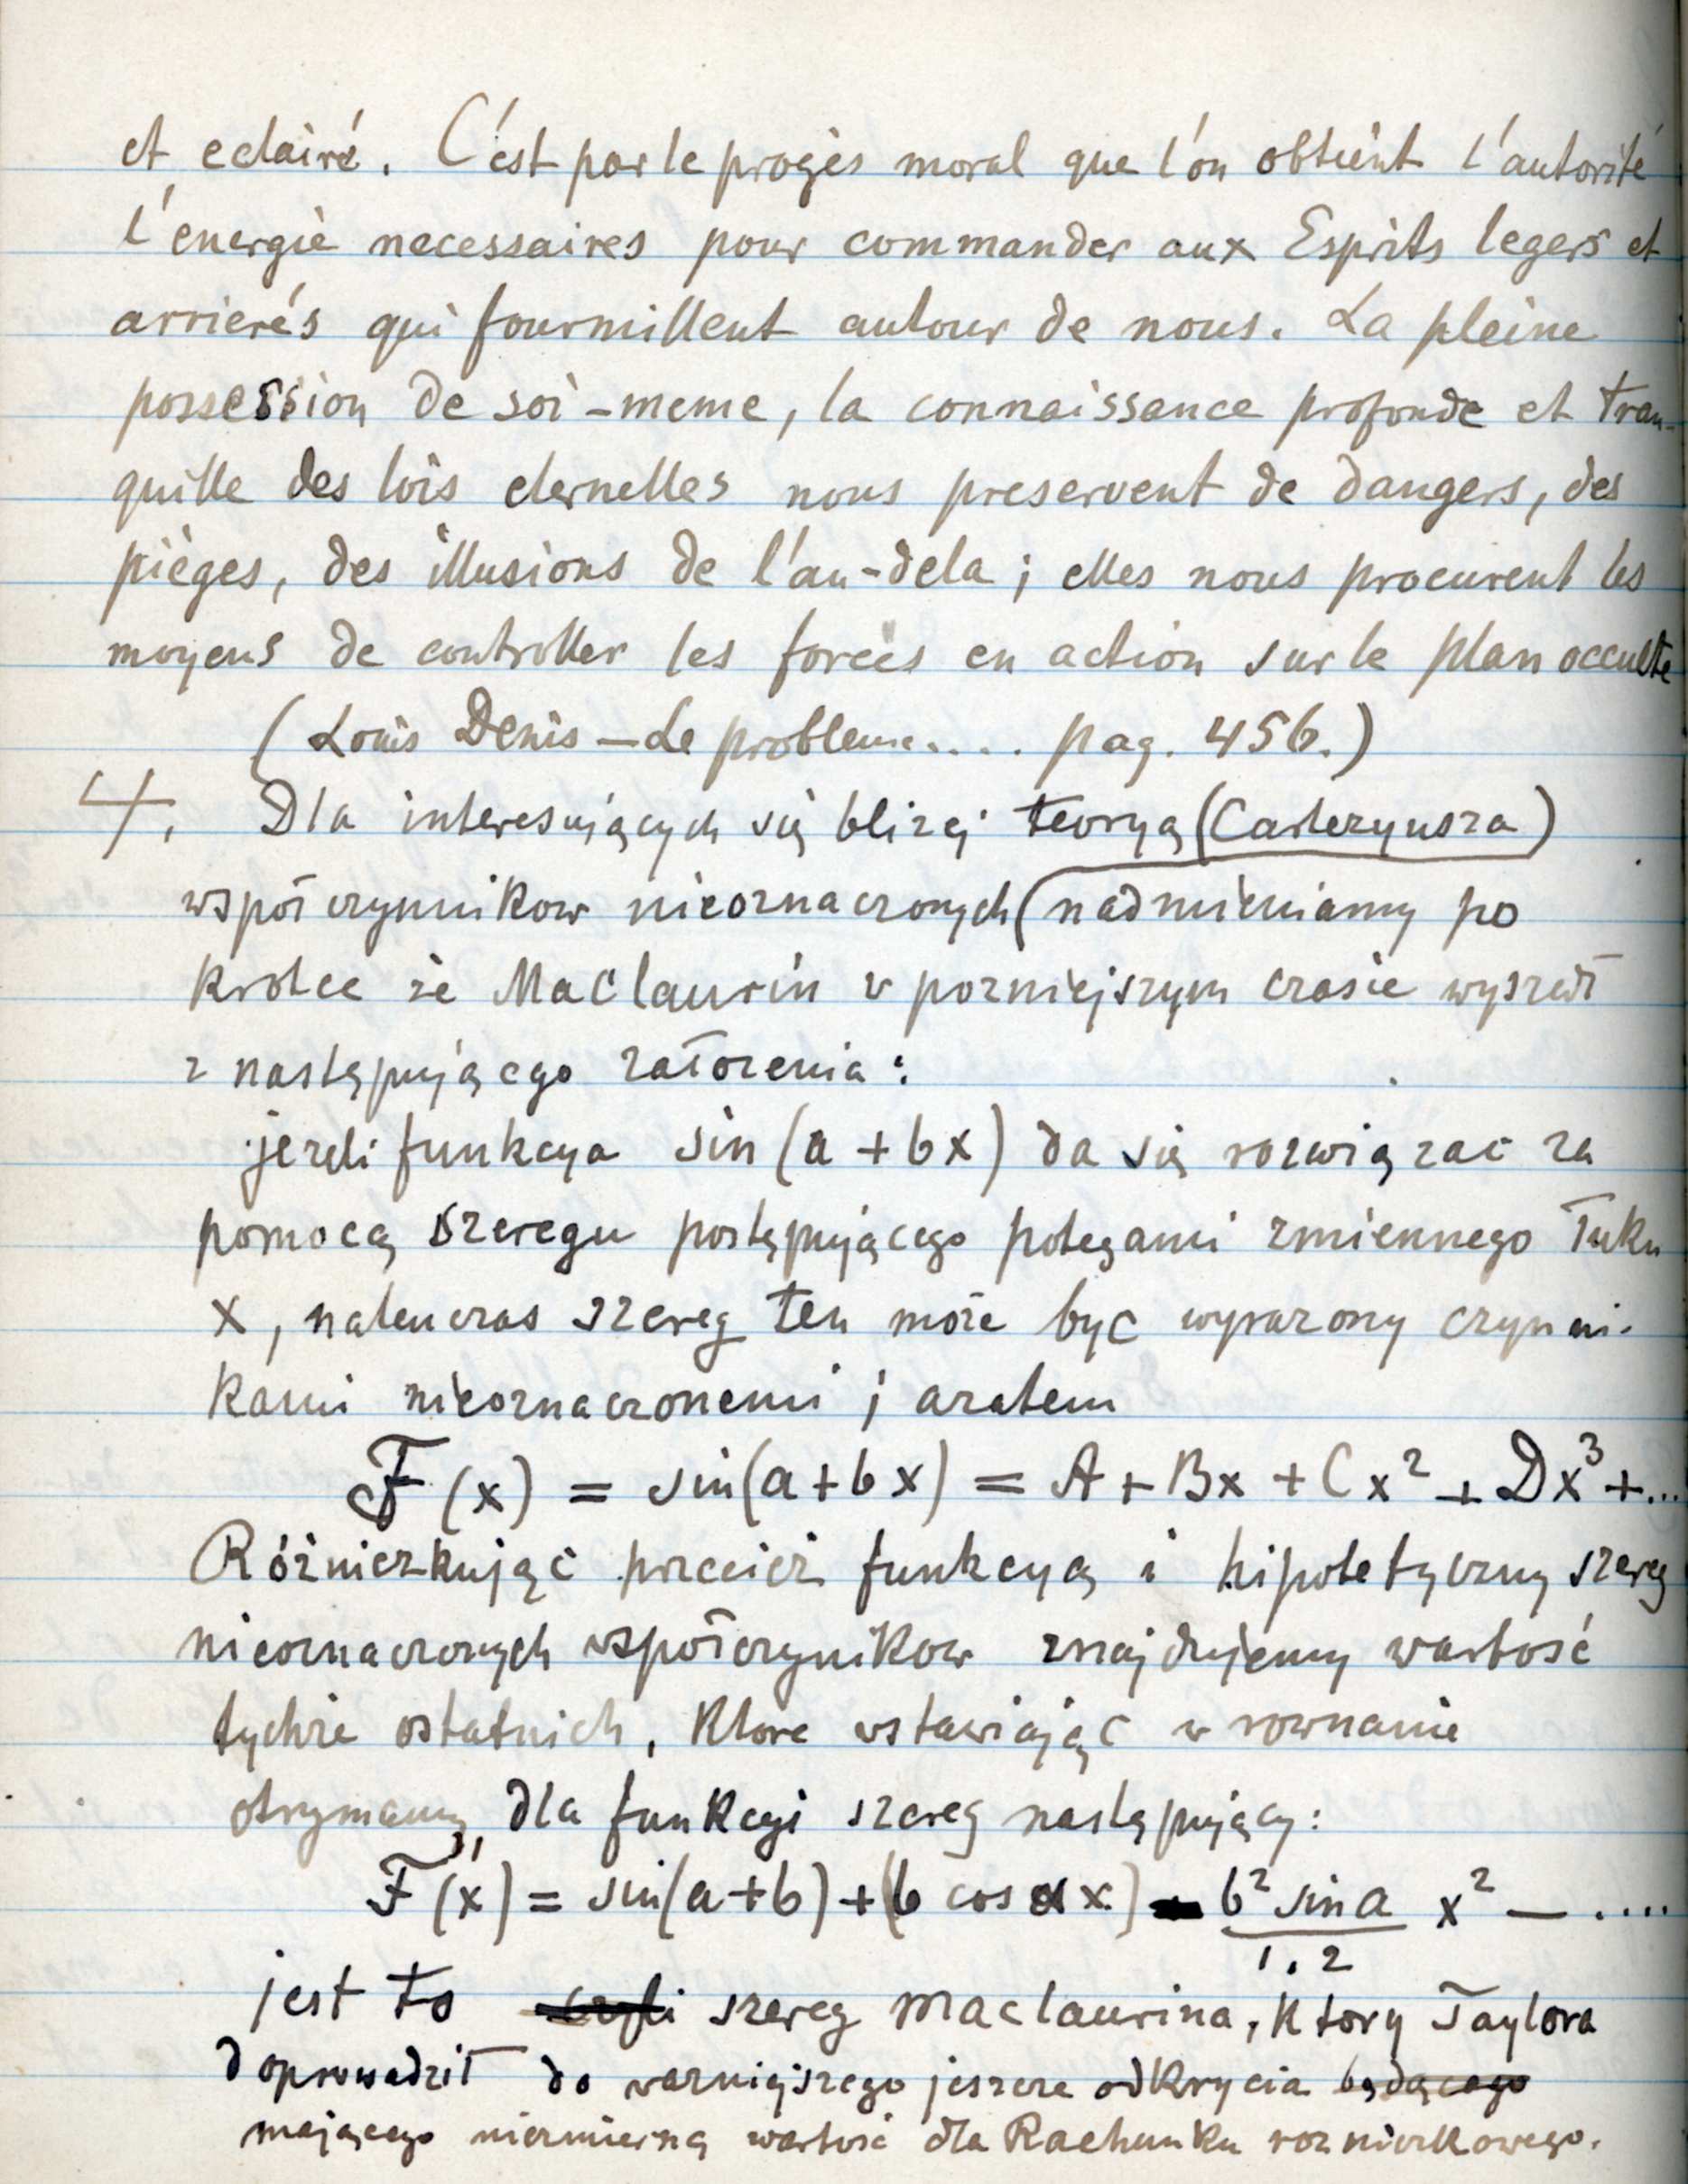 et eclairé. C'est par le progès moral que l'on obtient l'autorité
l'énergie necessaires pour commander aux Esprits legers et
arrierés qui fourmillent autour de nous. La pleine
possession de soi-meme, la connaissance profonde et tran-
quille des lois eternelles nous preservent de dangers, des
pièges, des illusions de l'au-dela; elles nous procurent les
moyens de controller les forces en action sur le plan occulte
(Louis Denis - Le probleme.... pag. 456.)
4. Dla interesujących się bliżej teoryą (Carterzyusza)
współczynnikow nieoznaczonych (nadmieniamy po
krotce że Maclaurin v pozniejszym czasie wyszedł
z następującego założenia:
jezeli funkcya sin (a + bx) da się rozwiązac za
pomocą szeregu postępującego potęgami zmiennego łuku
x, natenczas szereg ten może byc wyrazony czynni-
kami nieoznaczonemi; azatem
F (x) = sin(a+bx) = A + Bx + Cx² + Dx³ + ...
Różniczkując przecież funkcyą i hipotetyczny szereg
nieoznaczonych współczynikow znajdujemy wartość
tychże ostatnich, ktore wstawiając w rownanie
otrzymamy dla funkcyi szereg następujący:
F (x) = sin(a+b) + (b cos a x) - b² sin a / 1.2 x² - ....
jest to czyli szereg Maclaurina, ktory Taylora
doprowadził do wazniejszego jeszcze odkrycia będącego
mającego niezmierną wartość dla Rachunku rozniczkowego.